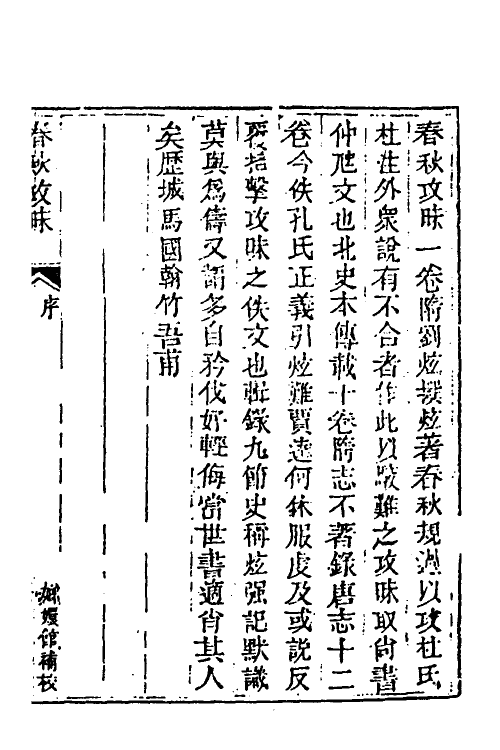 春秋攻昧一卷隋劉炫撰炫著春秋規過以攻杜氏
杜注外衆說有不合者作此以駁難之攻昧取尚書
仲虺文也北史本傳載十卷隋志不著錄唐志十二
卷今佚孔氏正義引炫難賈逵何休服虔及或說反
覆掊擊攻昧之佚文也輯錄九節史稱炫强記默識
莫與爲儔又謂多自矜伐好輕侮當世書適肖其人
矣歷城馬國翰竹吾甫
春秋攻昧
序
嫏嬛館補校